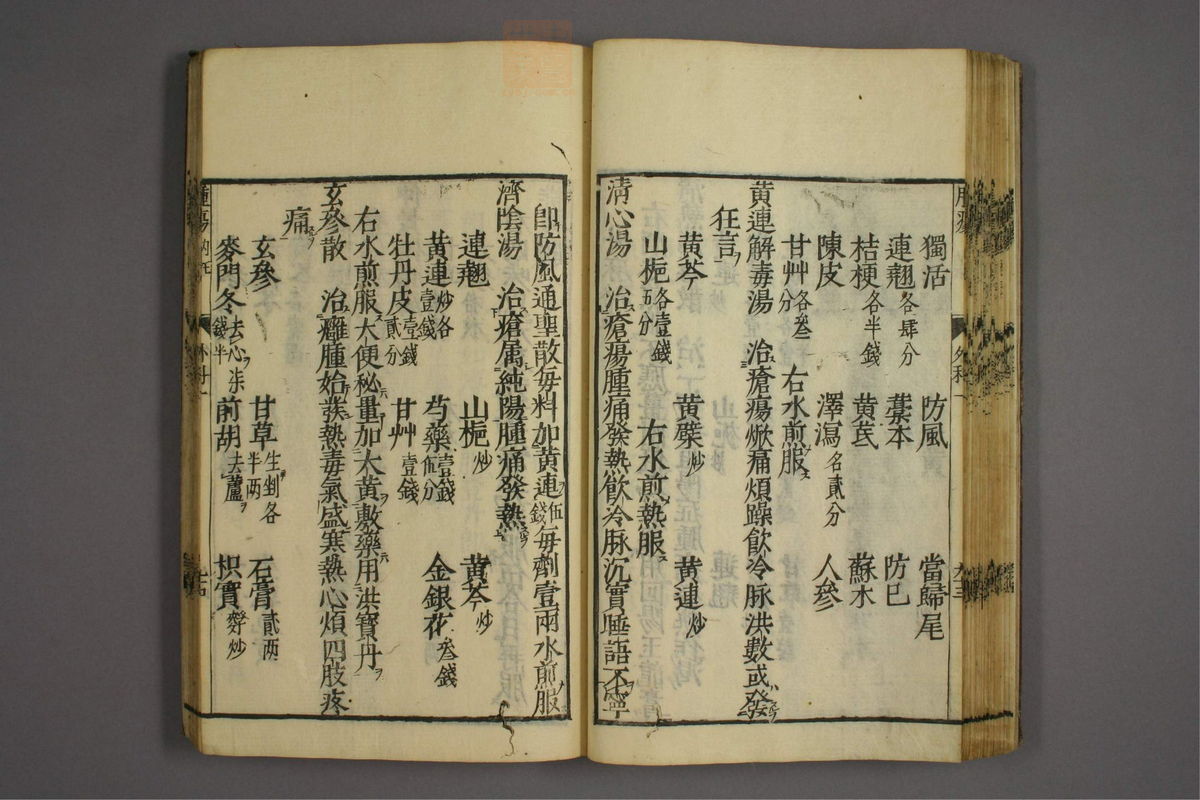 獨活 防風 當歸尾
連翹各肆分 藁本 防巳
桔梗各半錢 黄芪 蘇木
陳皮 澤瀉各貳分 人參
甘艸各叁分 右水煎服
黄連解毒湯 治瘡瘍焮痛煩躁飲冷脉洪數或發
狂言
黄芩 黄檗炒 黄連炒
山梔各壹錢五分 右水煎熱服
清心湯 治瘡瘍腫痛發熱飲冷脉沉實睡語不寧
卽防風通聖散每料加黄連伍錢每劑壹兩水煎服
濟陰湯 治瘡属純陽腫痛發熱
連翹 山梔炒 黄芩炒
黄連炒各壹錢 芍藥壹錢伍分 金銀花叁錢
牡丹皮壹錢貳分 甘艸壹錢
右水煎服大便秘量加大黄敷藥用洪寶丹
玄參散 治癰腫始發熱毒氣盛寒熱心煩四肢疼
痛
玄參 甘草生剉各半两 石膏貳两
麥門冬去心柒錢半 前胡去蘆 枳實麩炒
腫瘍
外科一